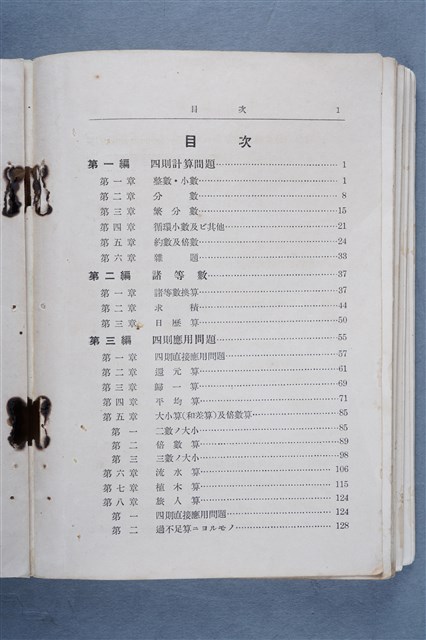 目 次 1
目 次
第一編 四則計算問題 1
第一章 整數・小數 1
第二章 分數 8
第三章 繁分數 15
第四章 循環小數及ビ其他 21
第五章 約數及倍數 24
第六章 雜題 33
第二編 諸等數 37
第一章 諸等數換算 37
第二章 求積 44
第三章 日曆算 50
第三編 四則應用問題 55
第一章 四則直接應用問題 57
第二章 還元算 61
第三章 歸一算 69
第四章 平均算 71
第五章 大小算(和差算)及倍數算 85
第一 二數ノ大小 85
第二 倍數算 89
第三 三數ノ大小 98
第六章 流水算 106
第七章 植木算 115
第八章 旅人算 124
第一 四則直接應用問題 124
第二 過不足算ニヨルモノ 128